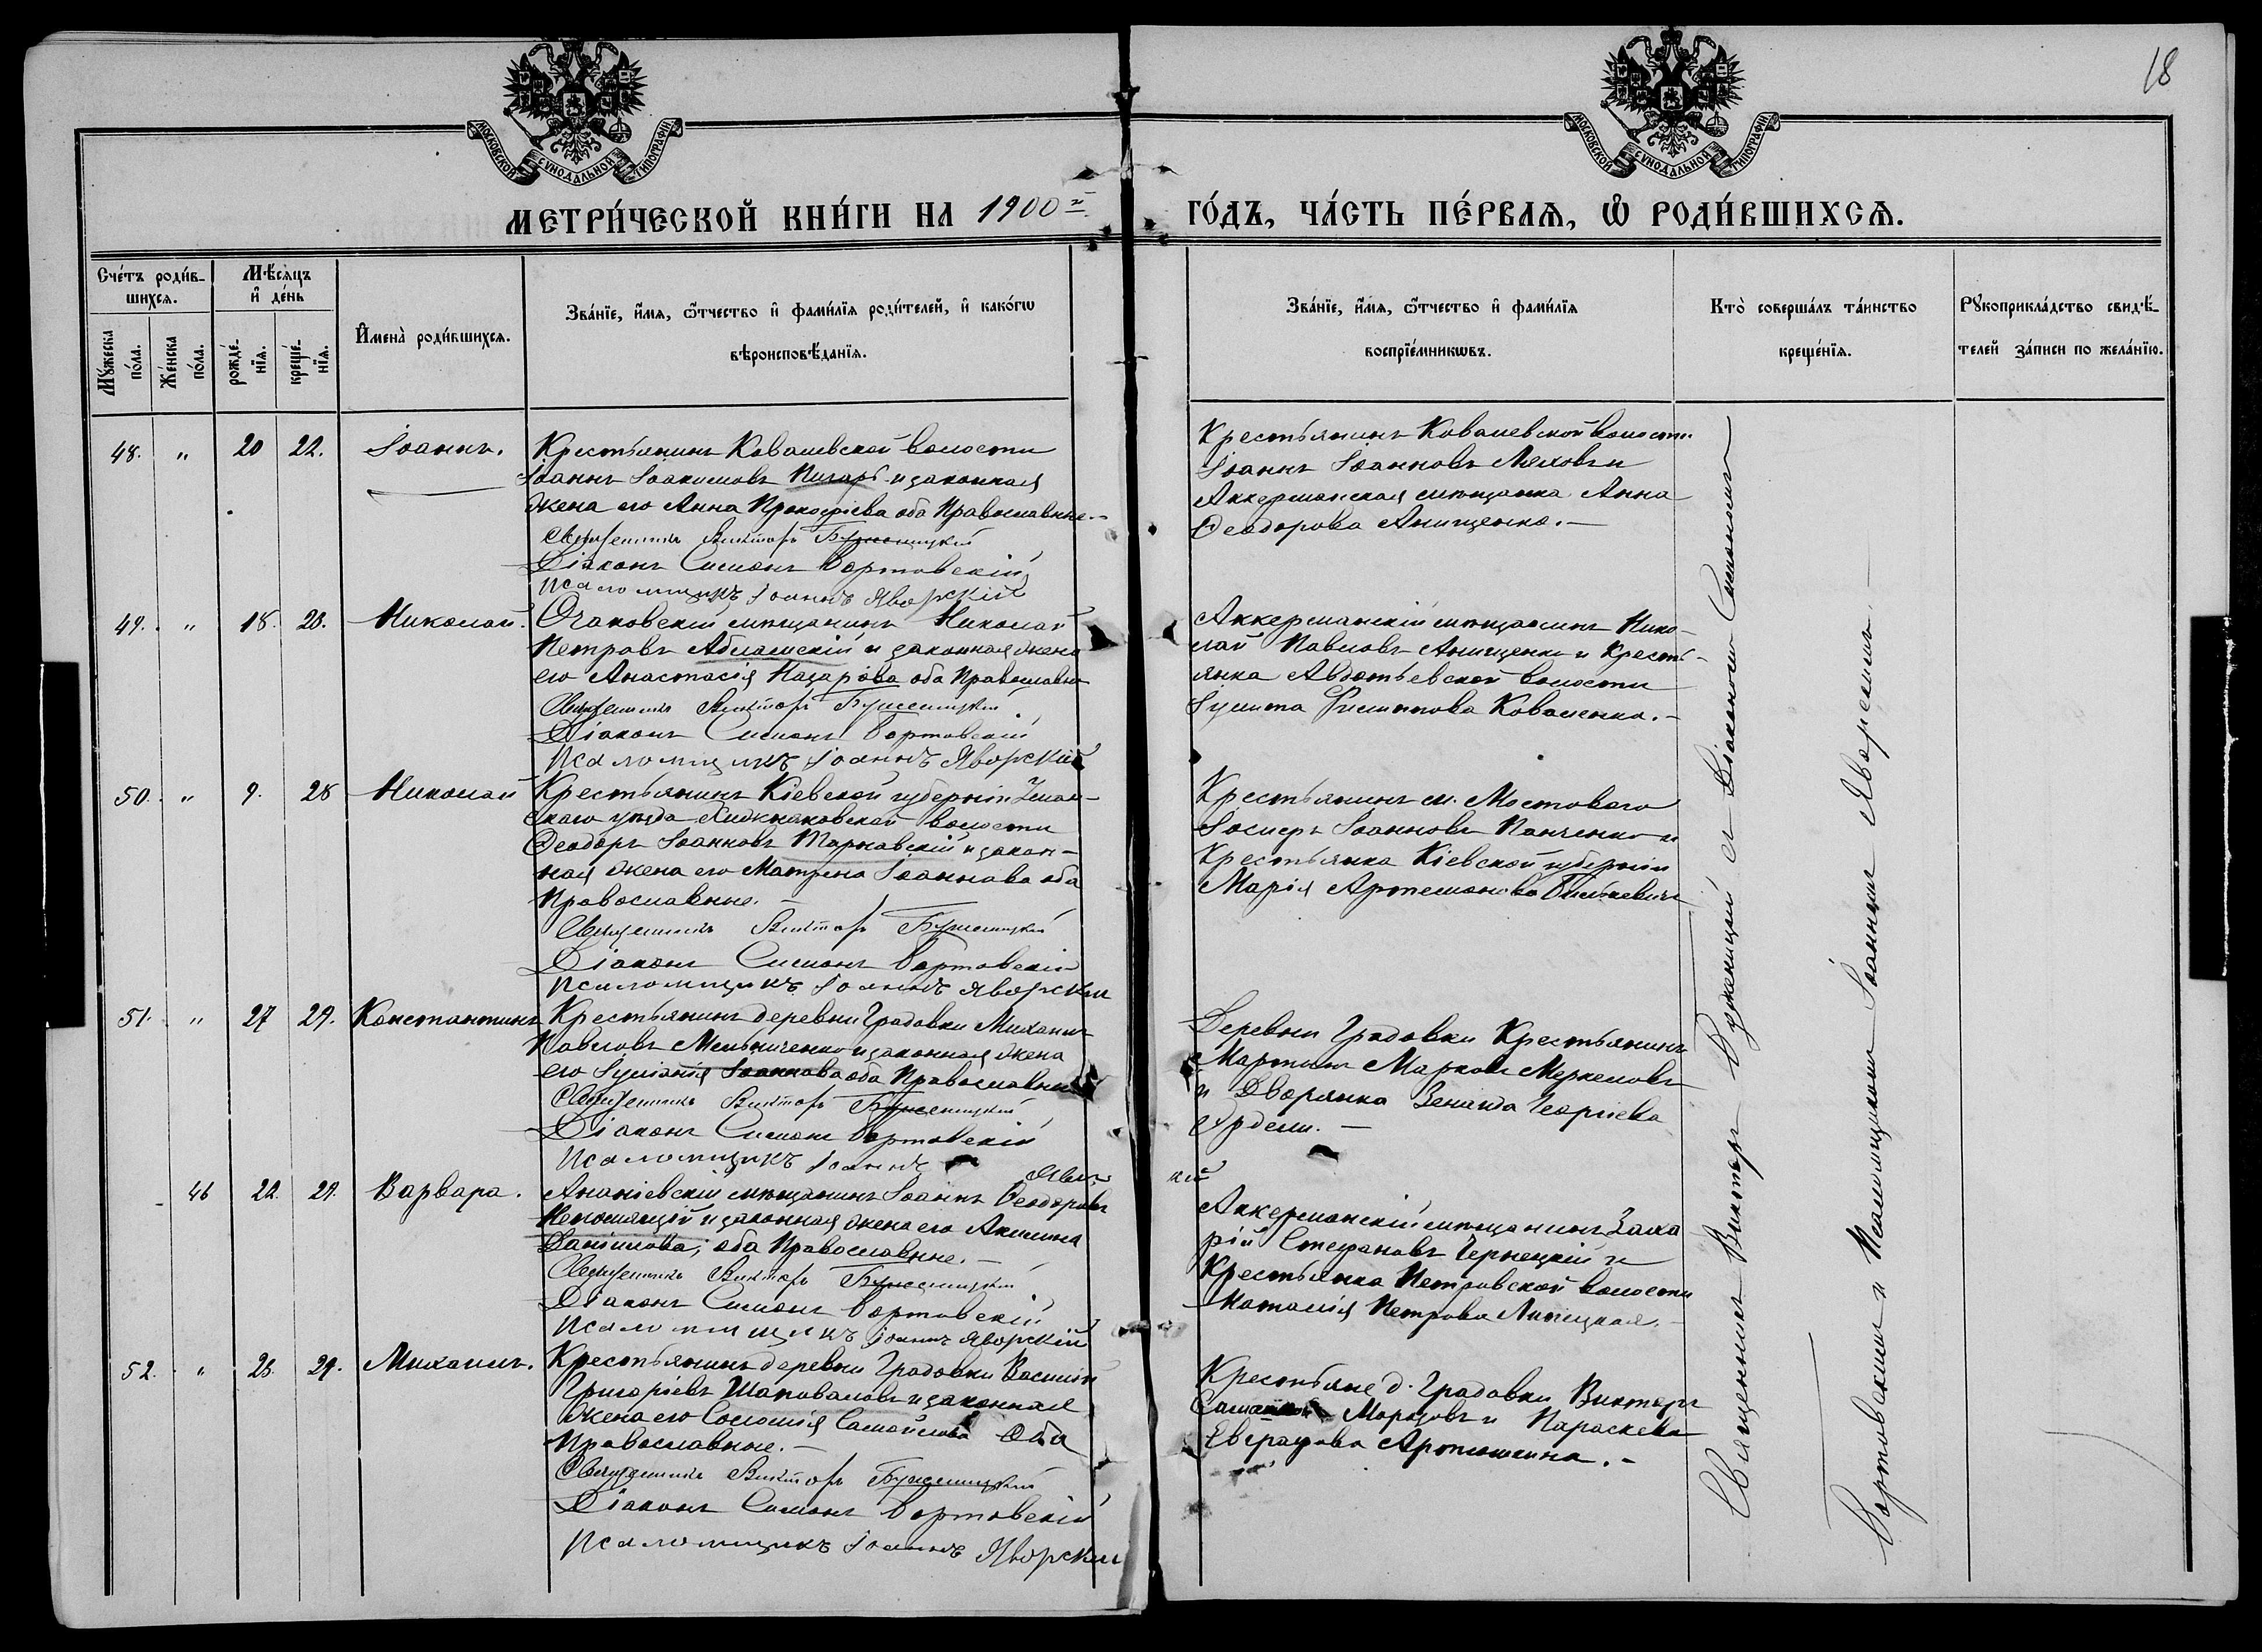 18
МОСКОВСКОЙ СУНОДАЛЬНОЙ ТИПОГРАФІИ
МОСКОВСКОЙ СУНОДАЛЬНОЙ ТИПОГРАФІИ
МЕТРИ́ЧЕСКОЙ КНИ́ГИ НА 1900й ГО́ДЪ, ЧА́СТЬ ПЕ́РВАѦ, Ѡ҆ РОДИ́ВШИХСѦ.
Сче́тъ роди́в-
шихсѧ.
Мꙋ́жеска
по́ла.
Же́нска
по́ла.
Мѣ́сѧцъ
и҆ де́нь
рожде́-
нїѧ.
креще́-
нїѧ.
И҆мена̀ роди́вшихсѧ.
Зва́нїе, и҆́мѧ, ѻ҆́тчество и҆ фами́лїѧ роди́телей, и҆ како́гѡ
вѣроисповѣ́данїѧ.
Зва́нїе, и҆́мѧ, ѻ҆́тчество и҆ фами́лїѧ
воспрїе́мникѡвъ.
Кто̀ соверша́лъ та́инство
креще́нїѧ.
Рꙋкоприкла́дство свидѣ́-
телей за́писи по жела́нїю.
48. " 20 22. Іоаннъ.
Крестьянинъ Ковалевской волости
Іоаннъ Іоакимовъ Писарь и законная
жена его Анна Прокофіева оба Православные.-
Священникъ Викторъ Буженицкій
Діаконъ Симонъ Бортовскій
Псаломщикъ Іоаннъ Яворскій
Крестьянинъ Ковалевской волости
Іоаннъ Іоанновъ Ляховъ и
Аккерманская мѣщанка Анна
Ѳеодорова Анищенко.-
49. " 18. 28. Николай.
Очаковскій мѣщанинъ Николай
Петровъ и законная жена
его Анастасія Назарова оба Православные
Священникъ Викторъ Буженицкій
Діаконъ Симонъ Бортовскій
Псаломщикъ Іоаннъ Яворскій
Аккерманскій мѣщанинъ Нико-
лай Павловъ Анищенко и Кресть-
янка Авдотьевской волости
Іулита Филиппова Коваленко.-
50. " 9. 28 Николай
Крестьянинъ Кіевской губерніи Уман-
скаго уѣзда волости
Ѳеодоръ Іоанновъ Тарнавскій и закон-
ная жена его Матрена Іоаннова оба
Православные.-
Священникъ Викторъ Буженицкій
Діаконъ Симонъ Бортовскій
Псаломщикъ Іоаннъ Яворскій
Крестьянинъ м. Мостового
Іоанновъ Панченко и
Крестьянка Кіевской губерніи
Марія Артемонова
51. " 27 29. Константинъ
Крестьянинъ деревни Градовки Михаилъ
Павловъ Мельниченко и законная жена
его Іуліанія Іоаннова оба Православные
Священникъ Викторъ Буженицкій
Діаконъ Симонъ Бортовскій
Псаломщикъ Іоаннъ Яворскій
Деревни Градовки Крестьянинъ
Мартинъ Марковъ Меркеловъ
и Дворянка Зенаида Георгіева
Ярдели.-
46 22. 29. Варвара.
Ананіевскій мѣщанинъ Іоаннъ Ѳеодоровъ
и законная жена его Акилина
Даніилова, оба Православные.-
Священникъ Викторъ Буженицкій
Діаконъ Симонъ Бортовскій
Псаломщикъ Іоаннъ Яворскій
Аккерманскій мѣщанинъ Заха
рій Стефановъ Чернецкій и
Крестьянка Петровской волости
Наталія Петрова Липецкая.-
52. " 23. 29. Михаилъ.
Крестьянинъ деревни Градовки Василій
Григоріевъ Шаповаловъ и законная
жена его Соломія Самойлова Оба
Православные.-
Священникъ Викторъ Буженицкій
Діаконъ Симонъ Бортовскій
Псаломщикъ Іоаннъ Яворскій
Крестьяне д. Градовки Викторъ
Морозовъ и Параскева
Евграфова Артюшкина.-
Священникъ Викторъ Буженицкій съ Діакономъ Симономъ
Бортовскимъ и Псаломщикомъ Іоанномъ Яворскимъ.-